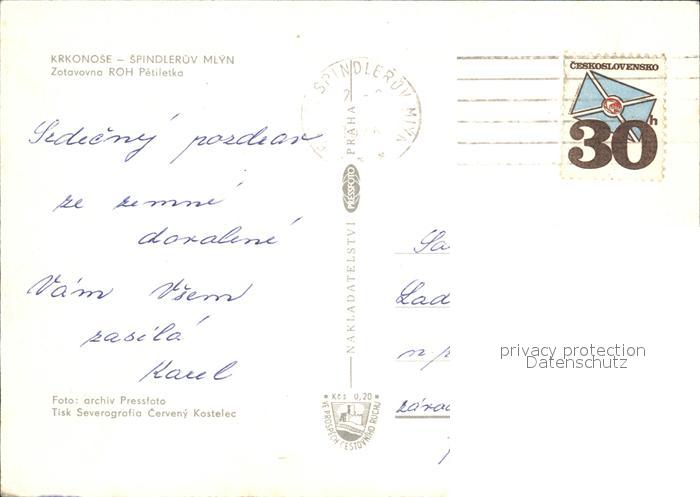 KRKONOŠE – ŠPINDLERŮV MLÝN
Zotavovna ROH Pětiletka
Srdečný pozdrav
ze zimné
dovolené
Vám Všem
zasílá
Karel
Foto: archiv Pressfoto
Tisk Severografia Červený Kostelec
NAKLADATELSTVÍ PRESSFOTO PRAHA
ŠPINDLERŮV MLÝN
ČESKOSLOVENSKO
30h
Kčs 0,20
VE PROSPĚCH CESTOVNÍHO RUCHU
Lad
privacy protection
Datenschutz